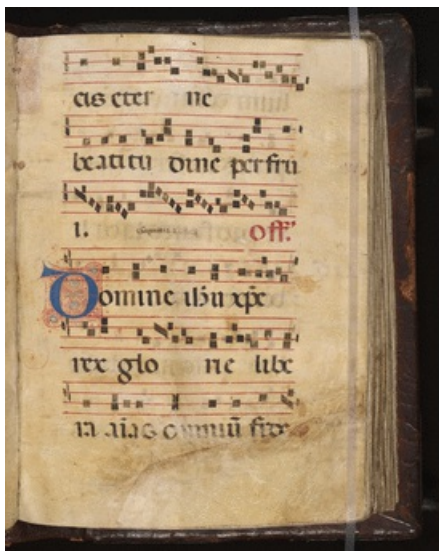 cis eter ne
beatitu dine perfru
i. off.
Domine ihu xp̄e
rex glo rie libe
ra aīas omniū fide